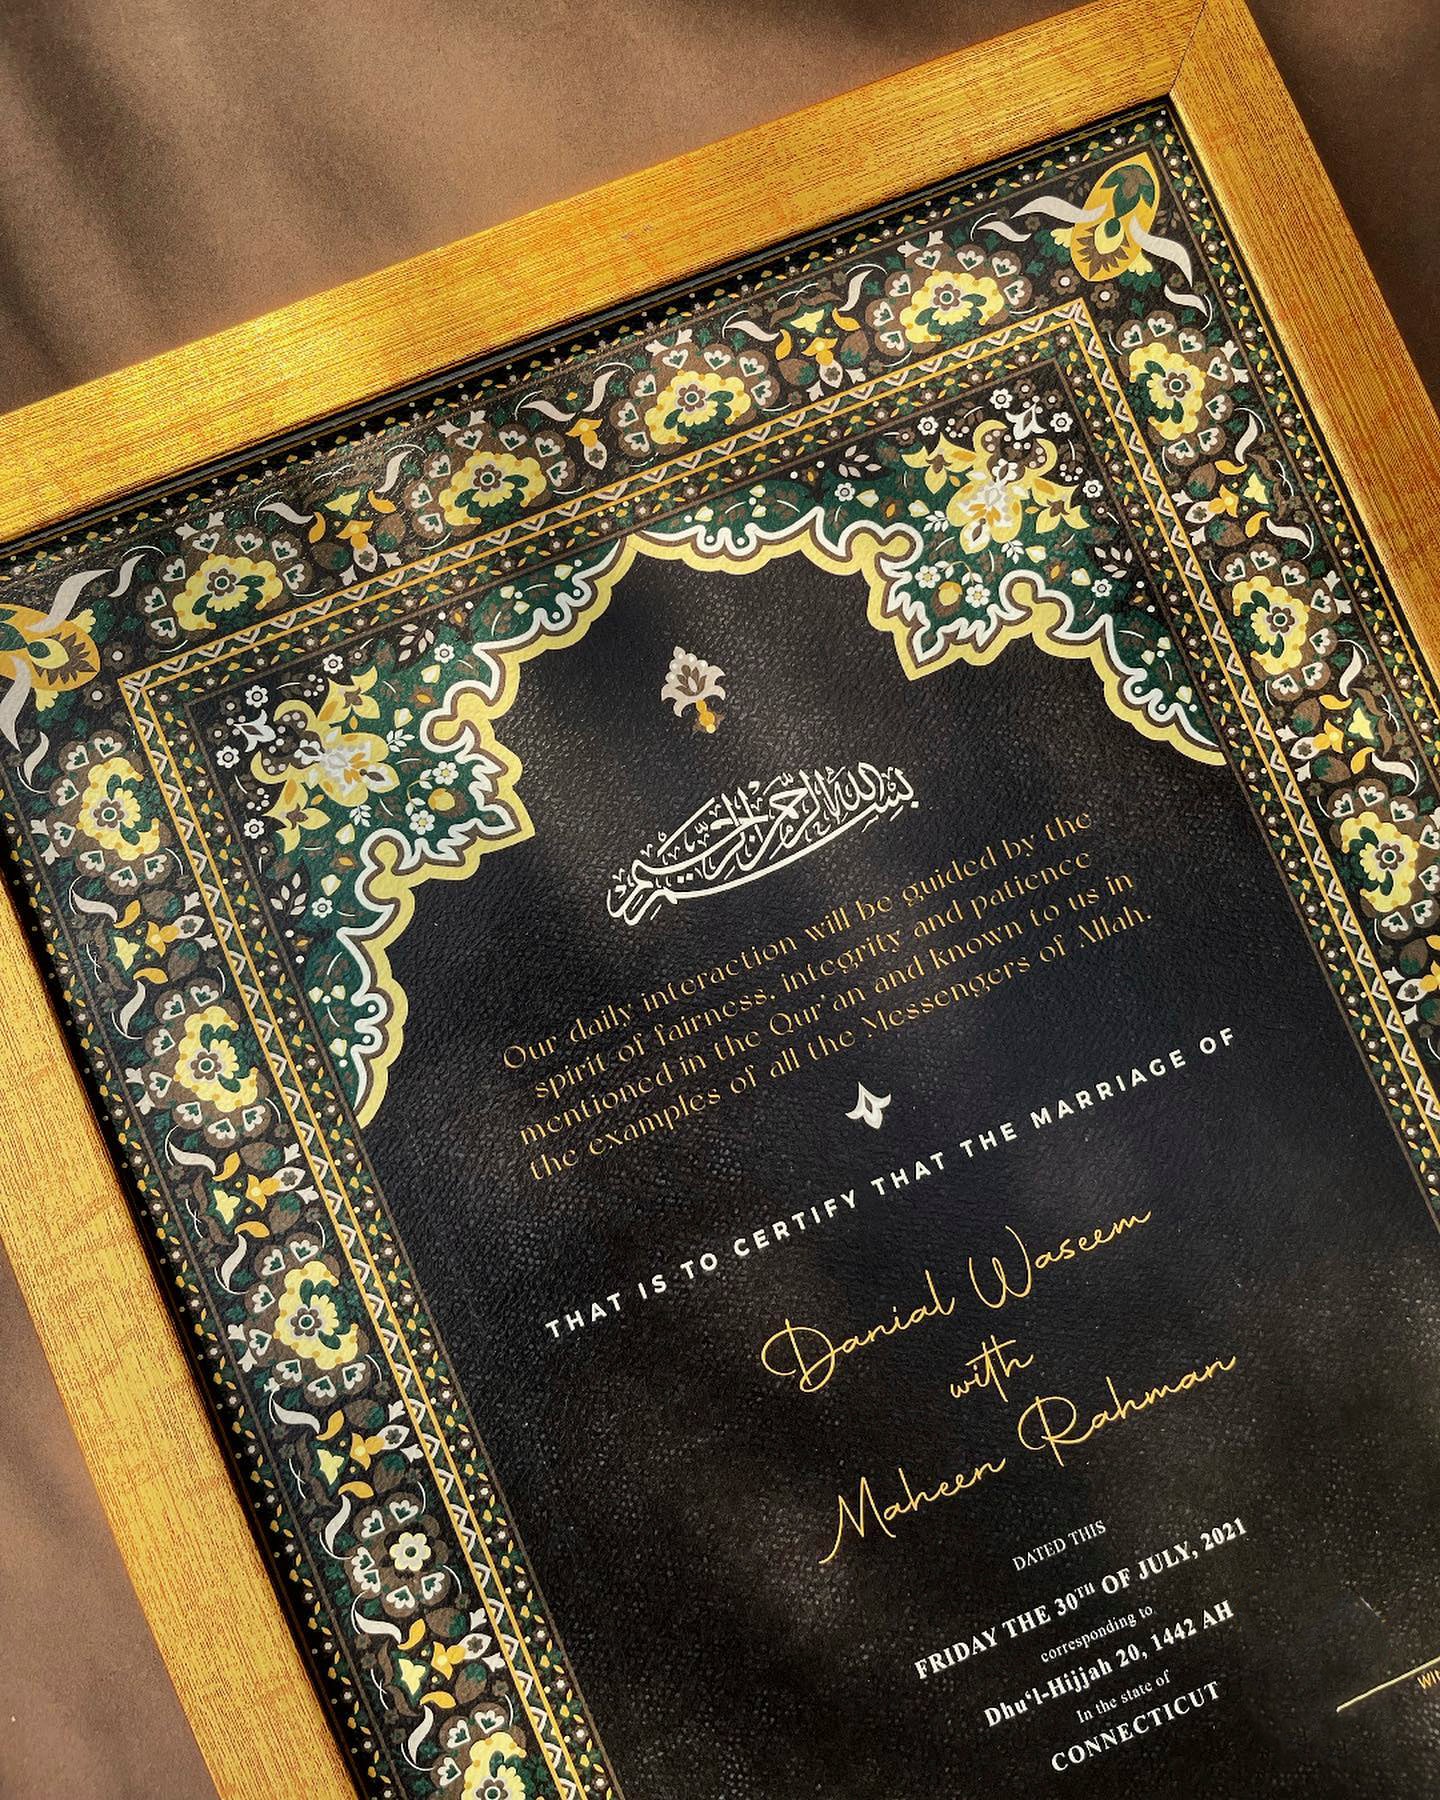 بسم الله الرحمن الرحيم
Our daily interaction will be guided by the
spirit of fairness, integrity and patience
mentioned in the Qur'an and known to us in
the examples of all the Messengers of Allah.
THAT IS TO CERTIFY THAT THE MARRIAGE OF
Danial Waseem
with
Maheen Rahman
DATED THIS
FRIDAY THE 30TH OF JULY, 2021
corresponding to
Dhu‘l-Hijjah 20, 1442 AH
In the state of
CONNECTICUT